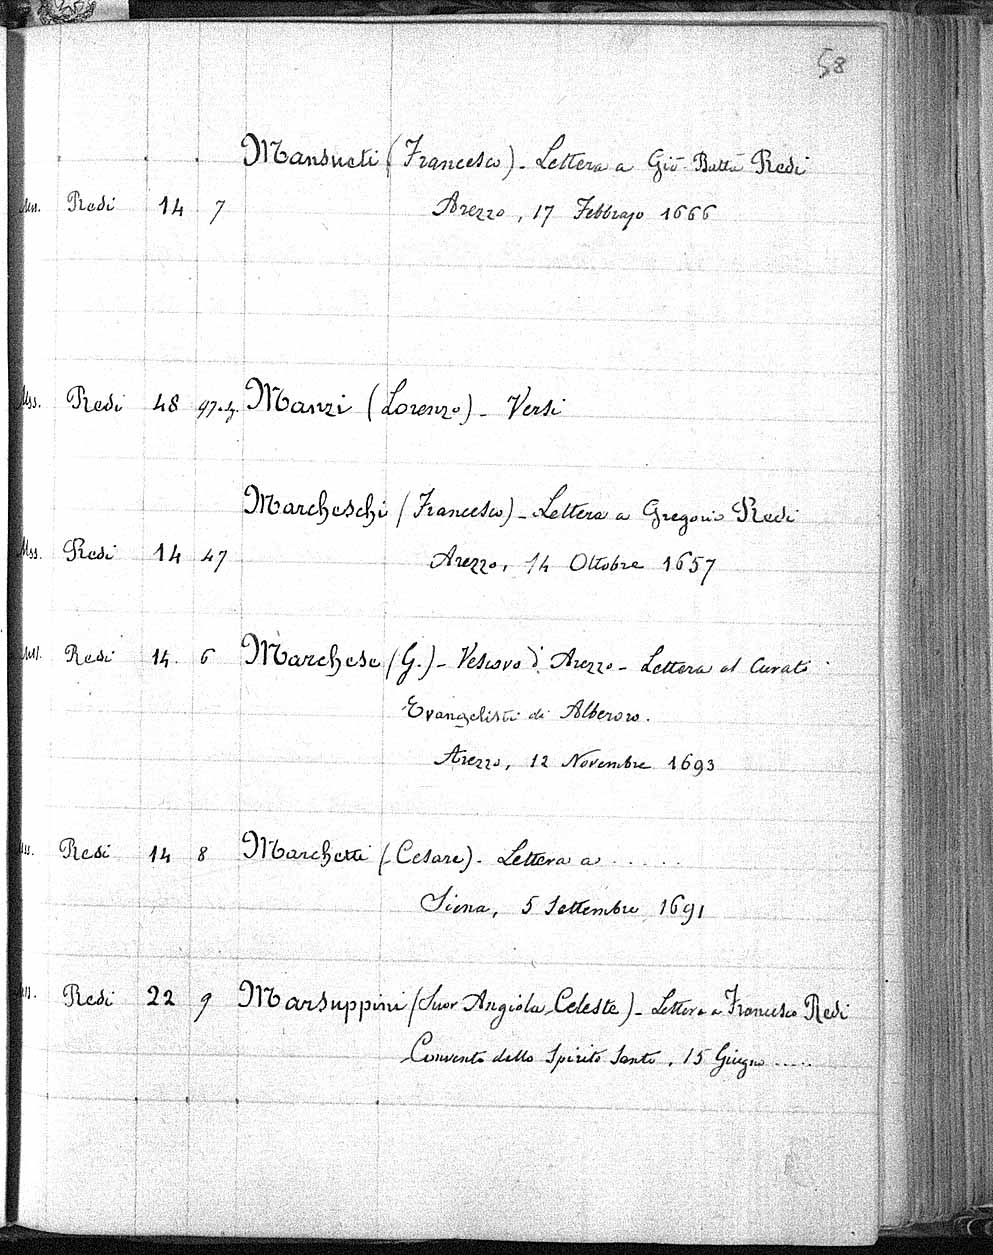 58
Mansueti (Francesco) - Lettera a Gio Batta Redi
Mss. Redi 14 7 Arezzo, 17 Febbrajo 1666
Mss. Redi 48 97. Manzi (Lorenzo) - Versi
Marcheschi (Francesco) - Lettera a Gregorio Redi
Mss. Redi 14 47 Arezzo, 14 Ottobre 1657
Mss. Redi 14 6 Marchese (G.) - Vescovo d'Arezzo - Lettera al Curato
Evangelisti di Alberoro.
Arezzo, 12 Novembre 1693
Mss. Redi 14 8 Marchetti (Cesare) - Lettera a .....
Siena, 5 Settembre 1691
Mss. Redi 22 9 Marsuppini (Suor Angiola Celeste) - Lettera a Francesco Redi
Convento dello Spirito Santo, 15 Giugno .....